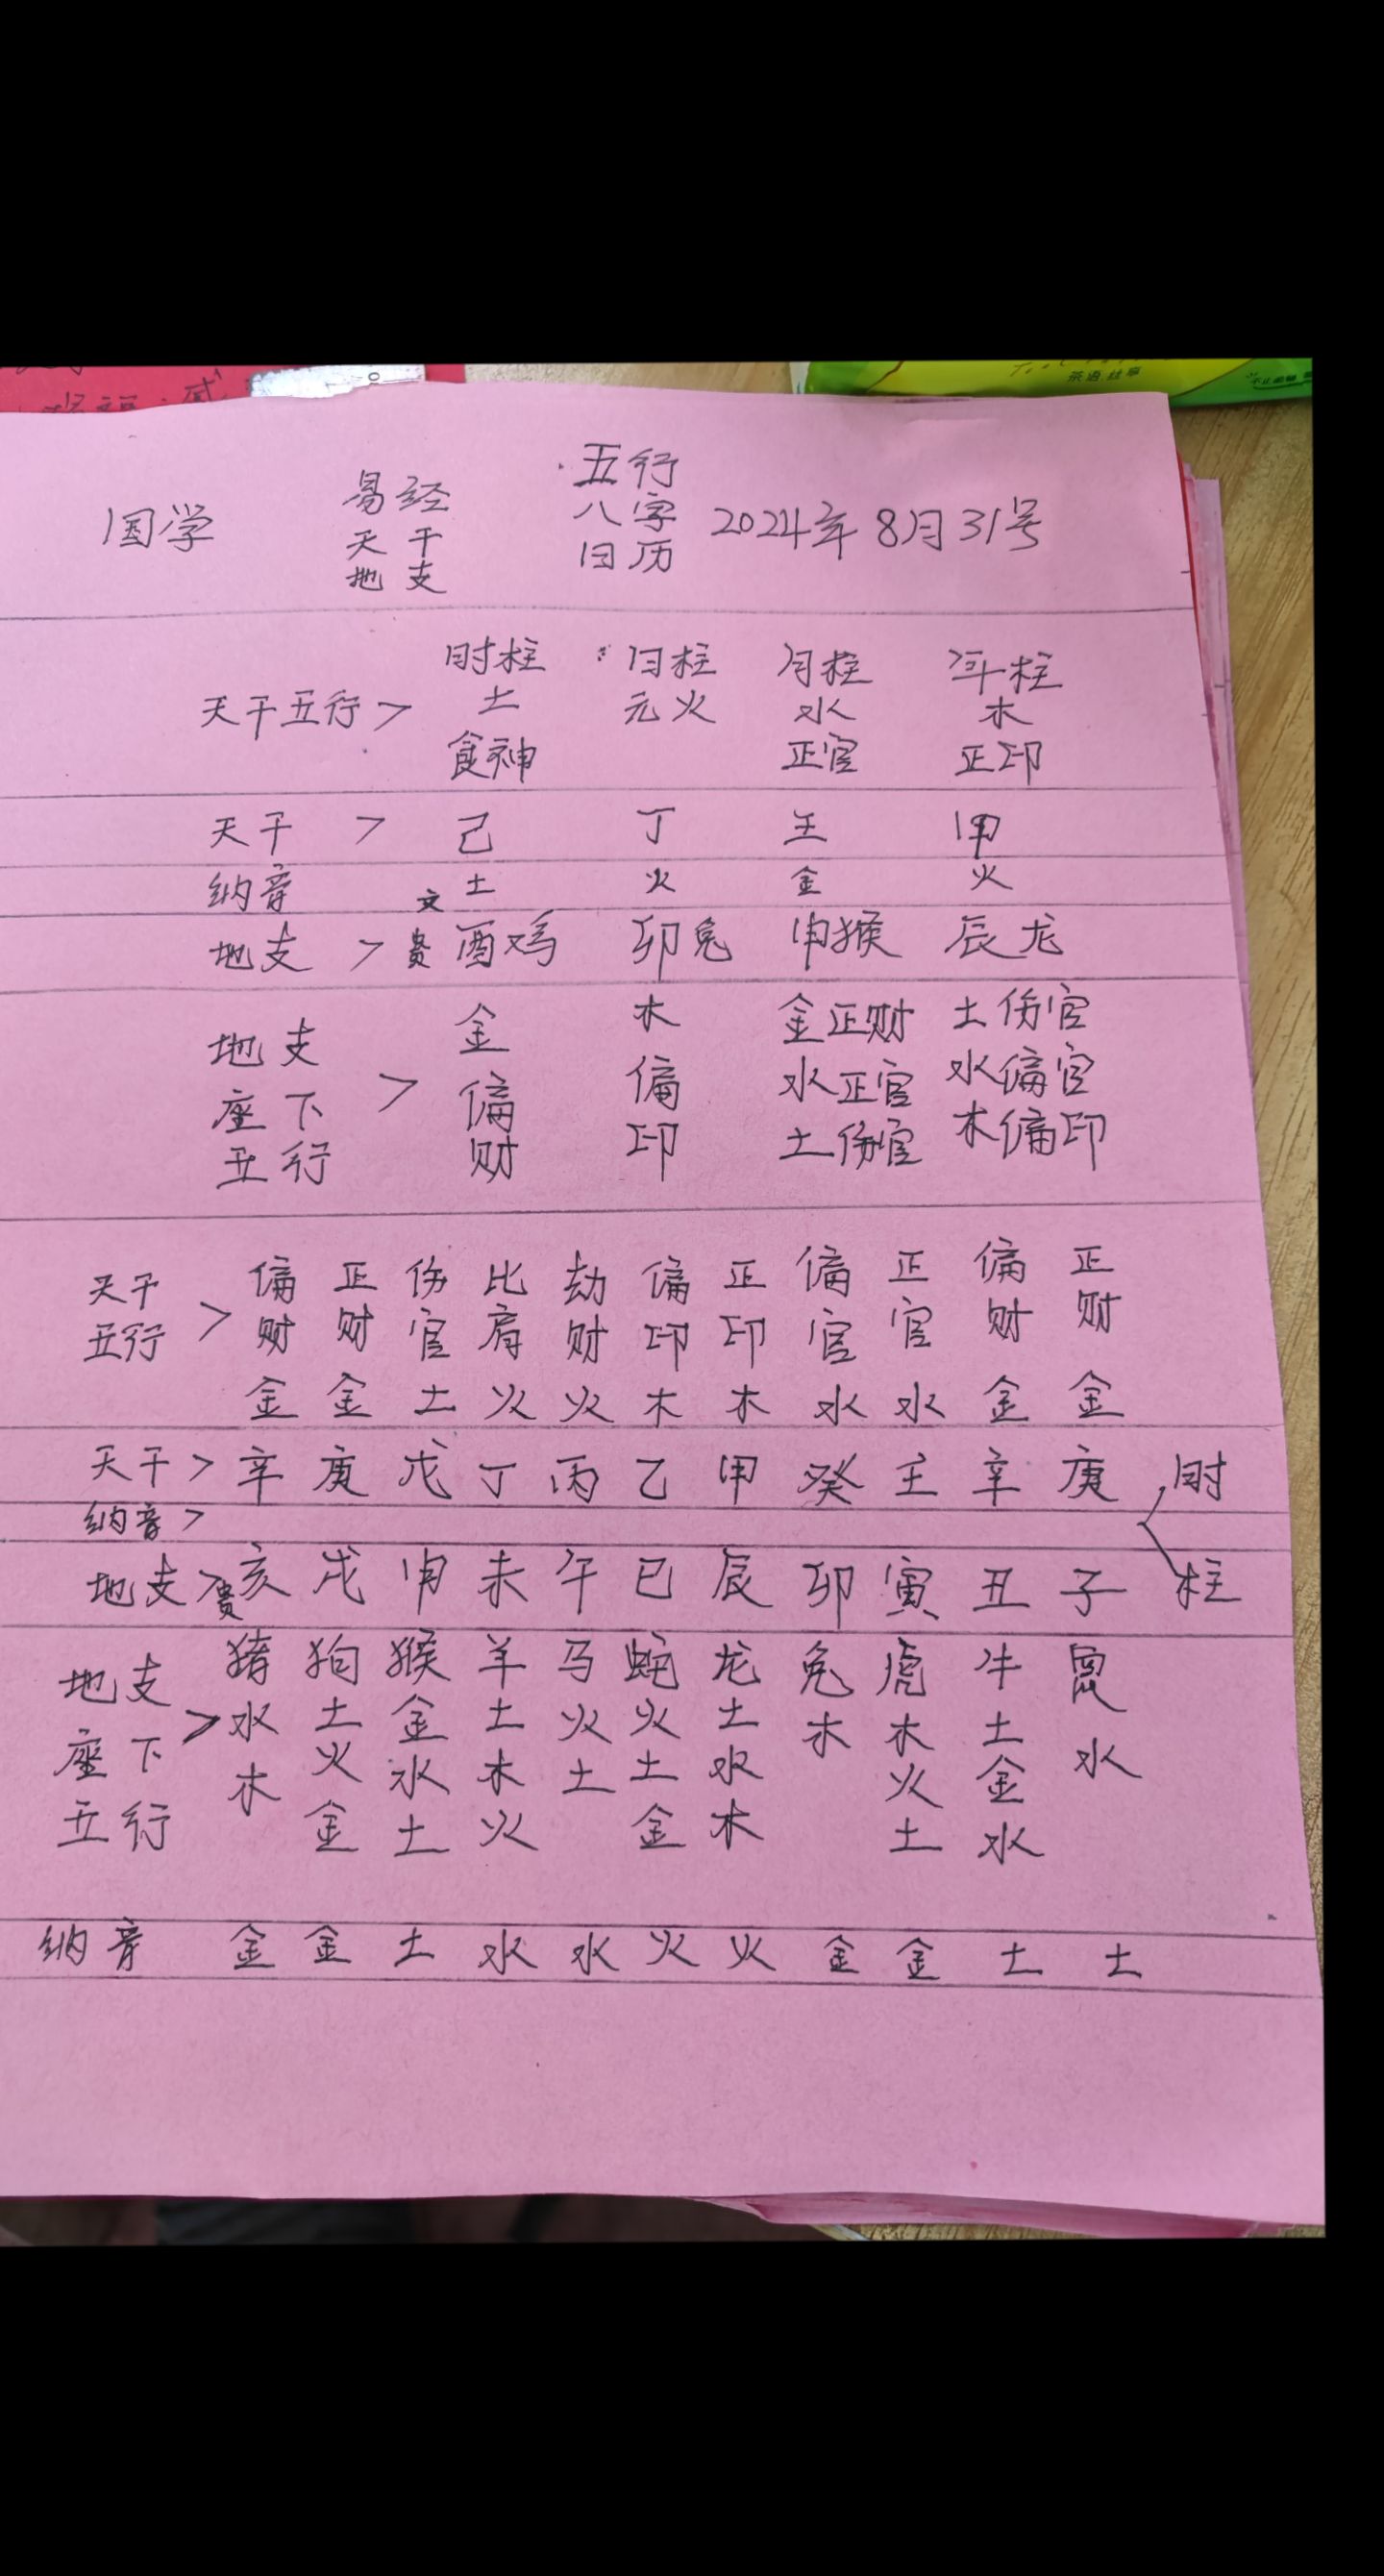 茶语故事
国学 易经 五行
天干 八字 2024年8月31号
地支 日历
时柱 日柱 月柱 年柱
天干五行> 土 元火 水 木
食神 正官 正印
天干 > 己 丁 壬 甲
纳音 土 火 金 火
文
地支 > 贵 酉鸡 卯兔 申猴 辰龙
地支 金 木 金正财 土伤官
座下 > 偏 偏 水正官 水偏官
五行 财 印 土伤官 木偏印
天干 偏 正 伤 比 劫 偏 正 偏 正 偏 正
五行 > 财 财 官 肩 财 印 印 官 官 财 财
金 金 土 火 火 木 木 水 水 金 金
天干> 辛 庚 戊 丁 丙 乙 甲 癸 壬 辛 庚 时
纳音>
地支> 贵 亥 戌 申 未 午 巳 辰 卯 寅 丑 子 柱
地支 猪 狗 猴 羊 马 蛇 龙 兔 虎 牛 鼠
座下 > 水 土 金 土 火 火 土 木 木 土 水
五行 木 火 水 木 土 土 水 火 金
金 土 火 金 木 土 水
纳音 金 金 土 水 水 火 火 金 金 土 土